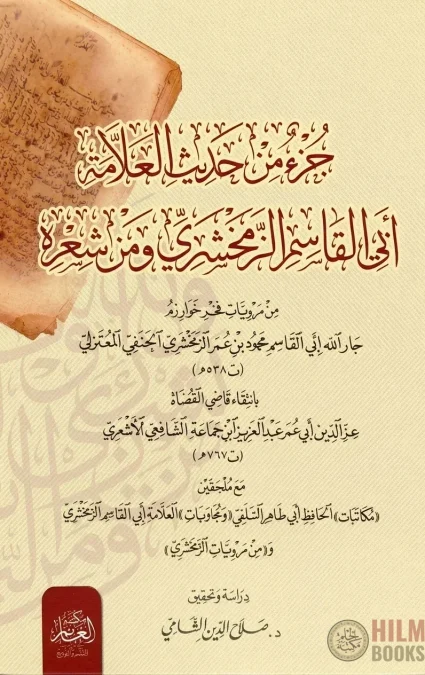 جُزْءٌ مِنْ حَدِيثِ العَلَّامَةِ
أَبِي القَاسِمِ الزَّمَخْشَرِيِّ وَمِنْ شِعْرِهِ
مِنْ مَرْوِيَّاتِ فَخْرِ خَوَارِزْمَ
جَارِ اللهِ أَبِي القَاسِمِ مَحْمُودِ بْنِ عُمَرَ الزَّمَخْشَرِيِّ الحَنَفِيِّ المُعْتَزِلِيِّ
(ت٥٣٨هـ)
بِانْتِقَاءِ قَاضِي القُضَاةِ
عِزِّ الدِّينِ أَبِي عُمَرَ عَبْدِ العَزِيزِ ابْنِ جَمَاعَةَ الشَّافِعِيِّ الأَشْعَرِيِّ
(ت٧٦٧هـ)
مَعَ مُلْحَقَيْنِ
«مُكَاتَبَاتِ» الحَافِظِ أَبِي طَاهِرٍ السِّلَفِيِّ «وَمُجَاوَبَاتِ» العَلَّامَةِ أَبِي القَاسِمِ الزَّمَخْشَرِيِّ
وَ«مِنْ مَرْوِيَّاتِ الزَّمَخْشَرِيِّ»
دِرَاسَة وَتَحْقِيق
د. صَلَاح الدِّين الشَّامِي
مكتبة
الغانم
للنشر والتوزيع
HILM
BOOKS